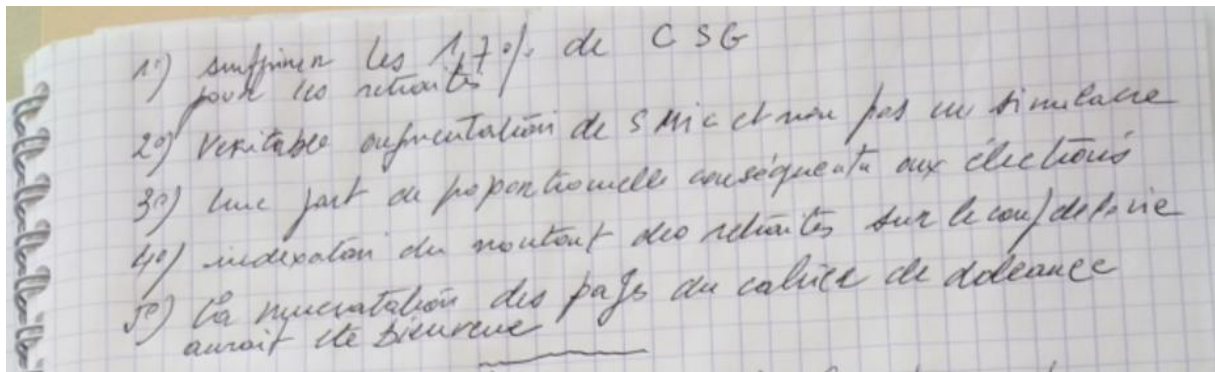 1°) supprimer les 1,7 % de CSG
pour les retraités
2°) Véritable augmentation de SMic et non pas un simulacre
3°) Une part de poportionnelle conséquente aux élections
4°) indexation du montant des retraités sur le coup de la vie
5°) La numérotation des pages du cahier de doléance
aurait été bienvenue